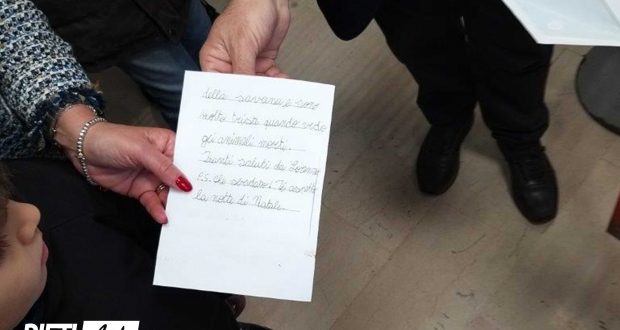 della savana e sono
molto triste quando vedo
gli animali morti.
Tanti saluti da Lorenzo
P.S. che sbadato! Ti aspetto
la notte di Natale.
RIETI